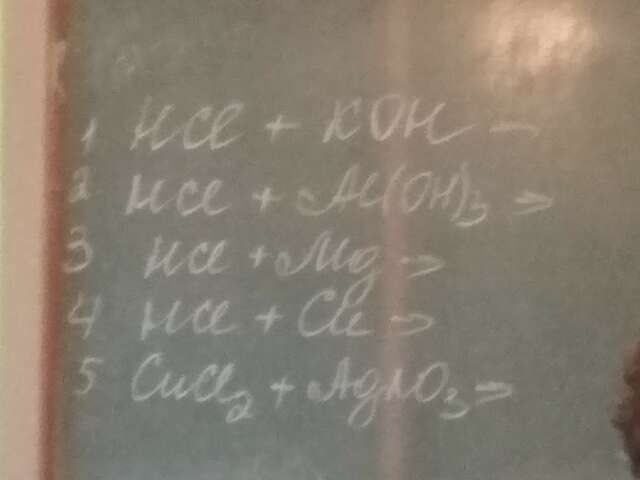 1 HCl + KOH →
2 HCl + Al(OH)3 →
3 HCl + Mg →
4 HCl + Cu →
5 CuCl2 + AgNO3 →